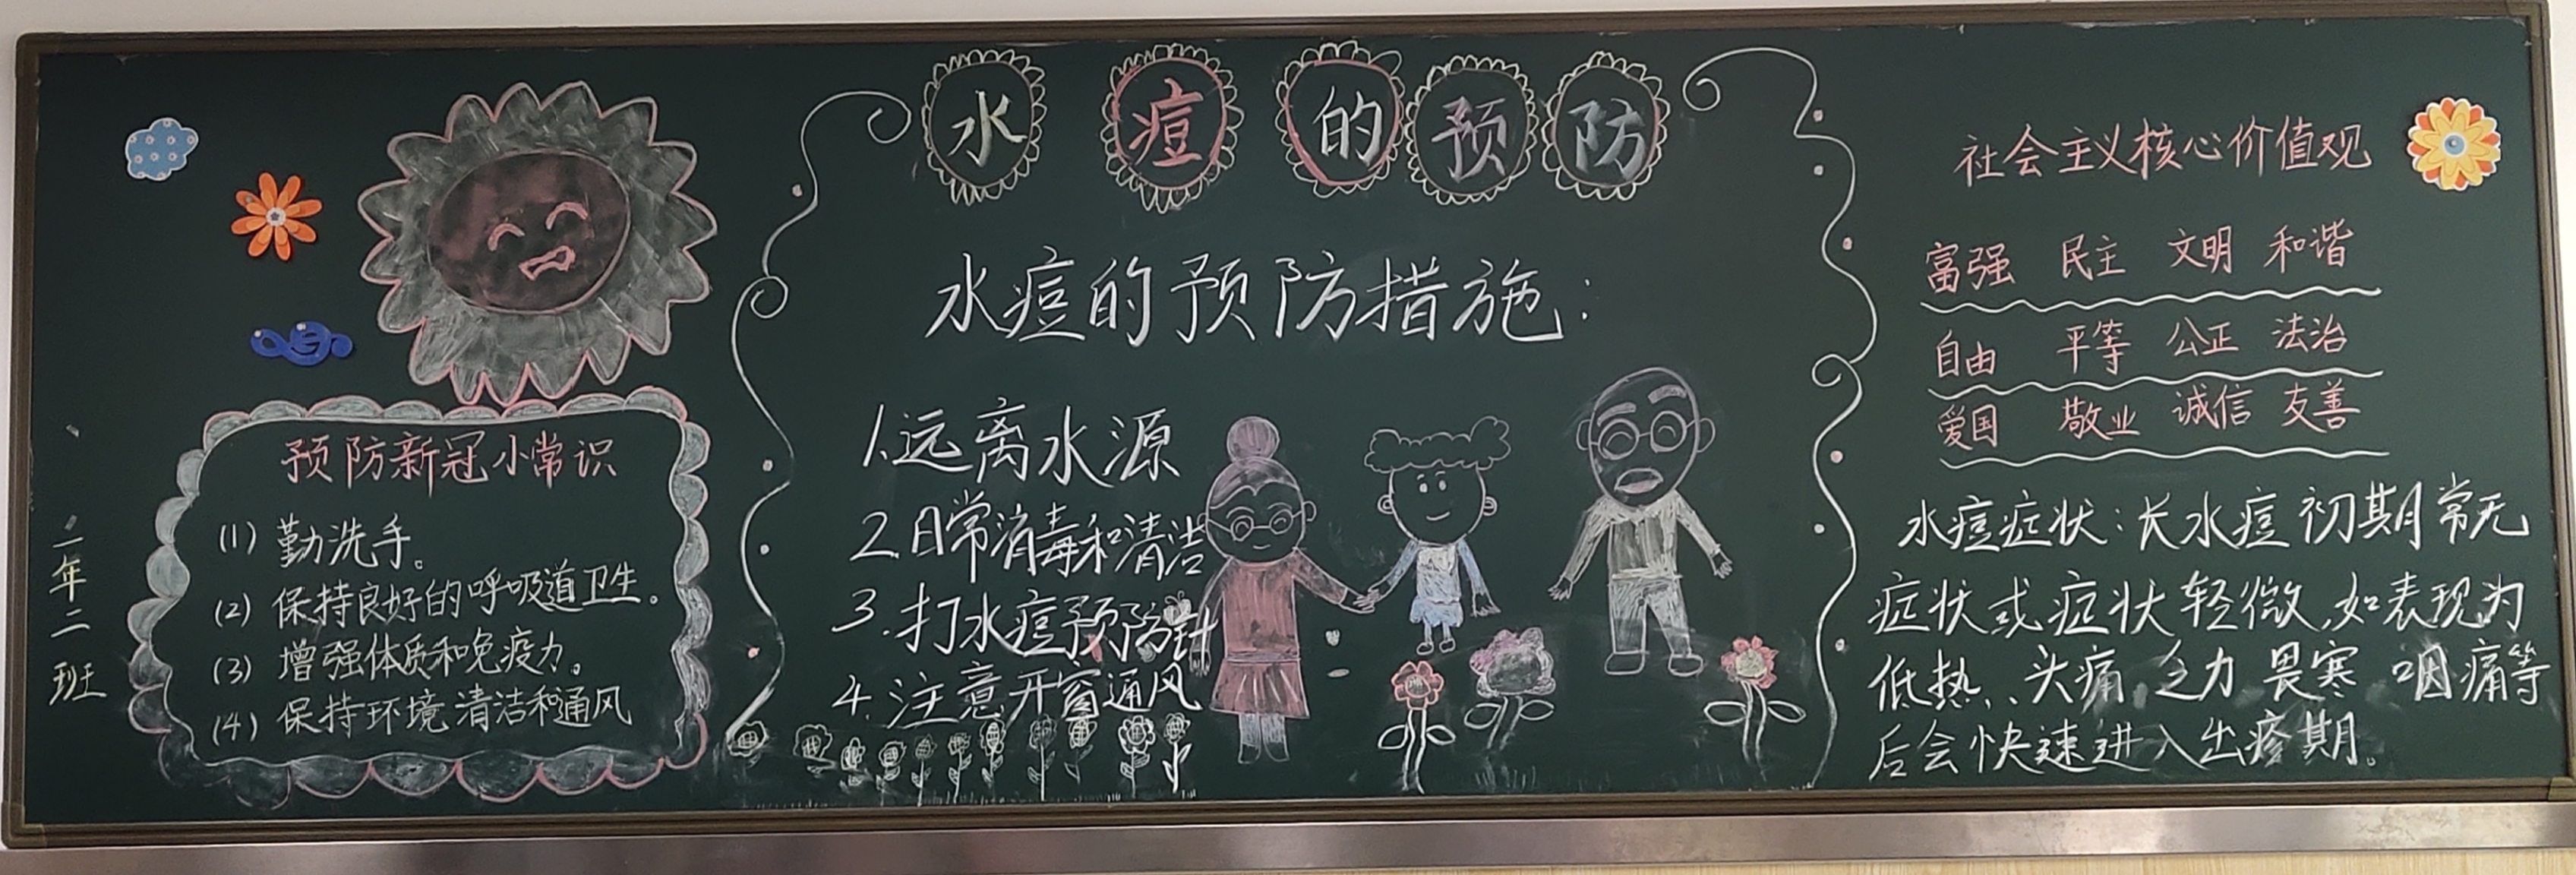 水痘的预防
预防新冠小常识
(1) 勤洗手。
(2) 保持良好的呼吸道卫生。
(3) 增强体质和免疫力。
(4) 保持环境清洁和通风
二年二班
水痘的预防措施:
1.远离水源
2.日常消毒和清洁
3.打水痘预防针
4.注意开窗通风
社会主义核心价值观
富强 民主 文明 和谐
自由 平等 公正 法治
爱国 敬业 诚信 友善
水痘症状:长水痘初期常无
症状或症状轻微,如表现为
低热、、头痛 乏力 畏寒 咽痛等
后会快速进入出疹期。